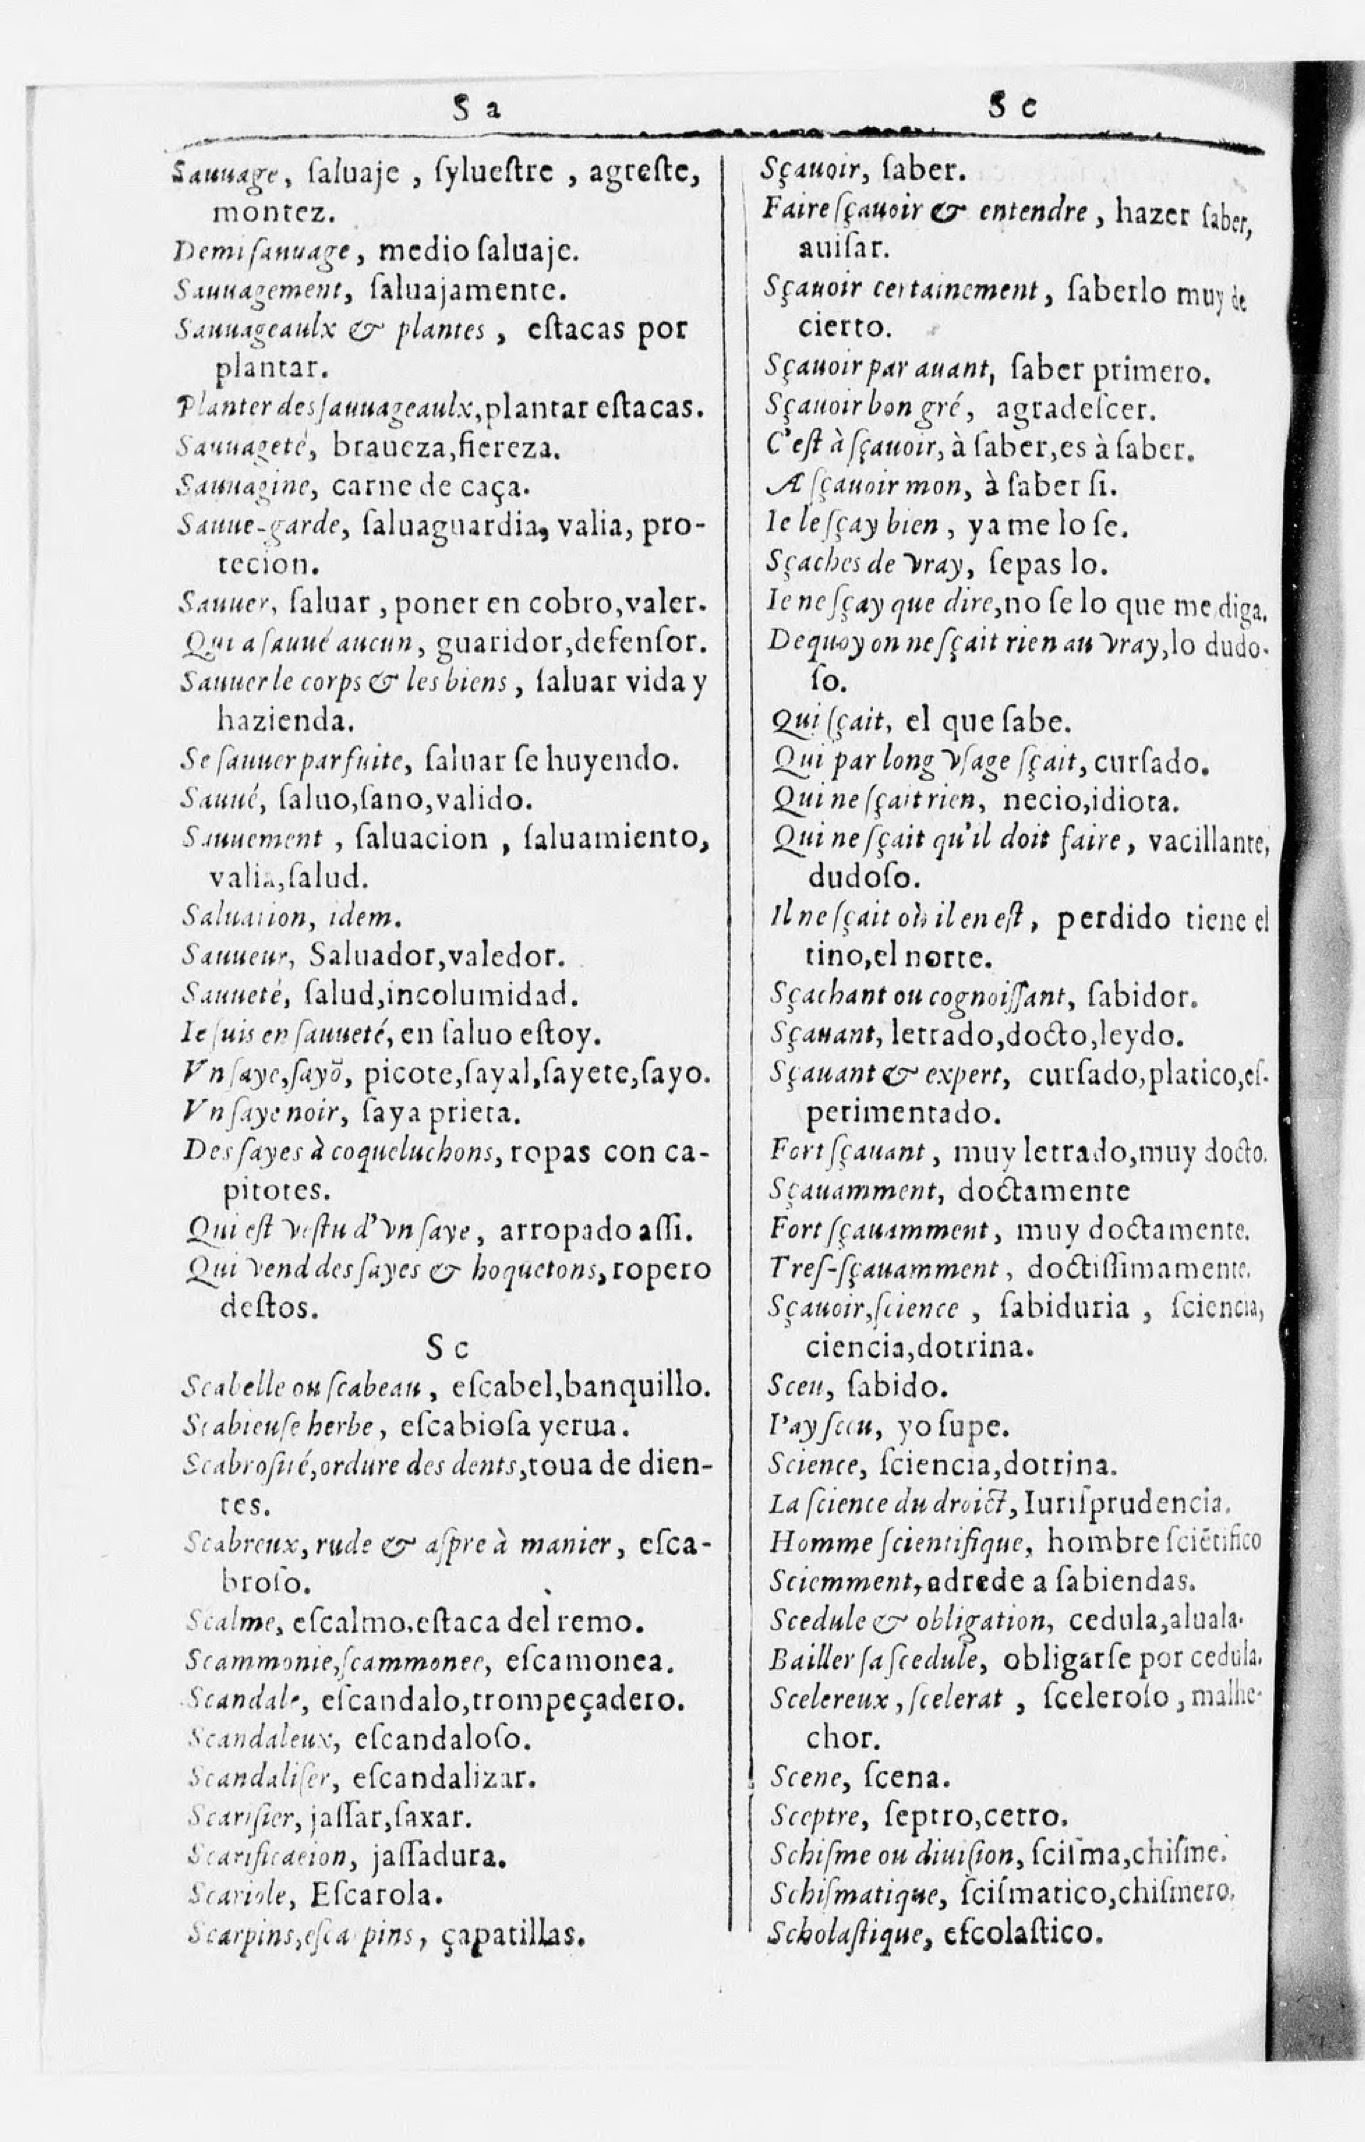 S a
Sauuage, ſaluaje, ſylueſtre, agreſte,
montez.
Demi ſauuage, medio ſaluaje.
Sauuagement, ſaluajamente.
Sauuageaulx & plantes, eſtacas por
plantar.
Planter des ſauuageaulx, plantar eſtacas.
Sauuageté, braueza, fiereza.
Sauuagine, carne de caça.
Sauue-garde, ſaluaguardia, valia, pro-
tecion.
Sauuer, ſaluar, poner en cobro, valer.
Qui a ſauué aucun, guaridor, defenſor.
Sauuer le corps & les biens, ſaluar vida y
hazienda.
Se ſauuer par fuite, ſaluar ſe huyendo.
Sauué, ſaluo, ſano, valido.
Sauuement, ſaluacion, ſaluamiento,
valia, ſalud.
Saluation, idem.
Sauueur, Saluador, valedor.
Sauueté, ſalud, incolumidad.
Ie ſuis en ſauueté, en ſaluo eſtoy.
Vn ſaye, ſayõ, picote, ſayal, ſayete, ſayo.
Vn ſaye noir, ſaya prieta.
Des ſayes à coqueluchons, ropas con ca-
pitotes.
Qui eſt veſtu d'vn ſaye, arropado aſſi.
Qui vend des ſayes & hoquetons, ropero
deſtos.
S c
Scabelle ou ſcabeau, eſcabel, banquillo.
Scabieuſe herbe, eſcabioſa yerua.
Scabroſité, ordure des dents, toua de dien-
tes.
Scabreux, rude & aſpre à manier, eſca-
broſo.
Scalme, eſcalmo, eſtaca del remo.
Scammonie, ſcammonee, eſcamonea.
Scandale, eſcandalo, trompeçadero.
Scandaleux, eſcandaloſo.
Scandaliſer, eſcandalizar.
Scarifier, jaſſar, ſaxar.
Scarificacion, jaſſadura.
Scariole, Eſcarola.
Scarpins, eſcarpins, çapatillas.
S c
Sçauoir, ſaber.
Faire ſçauoir & entendre, hazer ſaber,
auiſar.
Sçauoir certainement, ſaberlo muy de
cierto.
Sçauoir par auant, ſaber primero.
Sçauoir bon gré, agradeſcer.
C'eſt à ſçauoir, à ſaber, es à ſaber.
A ſçauoir mon, à ſaber ſi.
Ie le ſçay bien, ya me lo ſe.
Sçaches de vray, ſepas lo.
Ie ne ſçay que dire, no ſe lo que me diga.
De quoy on ne ſçait rien au vray, lo dudo-
ſo.
Qui ſçait, el que ſabe.
Qui par long vſage ſçait, curſado.
Qui ne ſçait rien, necio, idiota.
Qui ne ſçait qu'il doit faire, vacillante,
dudoſo.
Il ne ſçait où il en eſt, perdido tiene el
tino, el norte.
Sçachant ou cognoiſſant, ſabidor.
Sçauant, letrado, docto, leydo.
Sçauant & expert, curſado, platico, eſ-
perimentado.
Fort ſçauant, muy letrado, muy docto.
Sçauamment, doctamente
Fort ſçauamment, muy doctamente.
Treſ-ſçauamment, doctiſſimamente.
Sçauoir, ſcience, ſabiduria, ſciencia,
ciencia, dotrina.
Sceu, ſabido.
I'ay ſceu, yo ſupe.
Science, ſciencia, dotrina.
La ſcience du droict, Iuriſprudencia.
Homme ſcientifique, hombre ſciẽtifico
Sciemment, adrede a ſabiendas.
Scedule & obligation, cedula, aluala.
Bailler ſa ſcedule, obligarſe por cedula.
Scelereux, ſcelerat, ſceleroſo, malhe-
chor.
Scene, ſcena.
Sceptre, ſeptro, cetro.
Schiſme ou diuiſion, ſciſma, chiſme.
Schiſmatique, ſciſmatico, chiſmero.
Scholaſtique, eſcolaſtico.